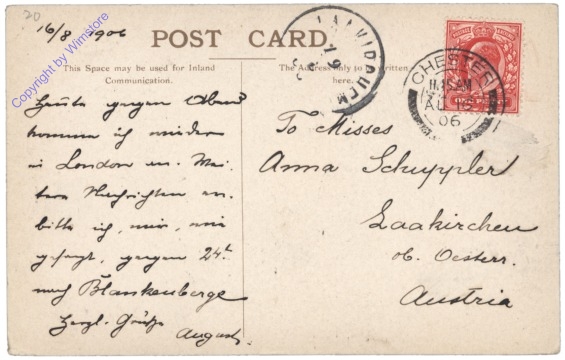 20
16/8 1906
POST CARD.
This Space may be used for Inland
Communication.
The Address only to be written
here.
LAAKIRCHEN
19
CHESTER
11.15AM
AU 16
06
Copyright by Wimstore
Heute gegen Abend
komme ich wieder
in London an. Wei-
tere Nachrichten er-
bitte ich, mir, wie
gesagt, gegen 24t
nach Blankenberge
Herzl. Grüße
August.
To Misses
Anna Schuppler
Laakirchen
ob. Oesterr.
Austria